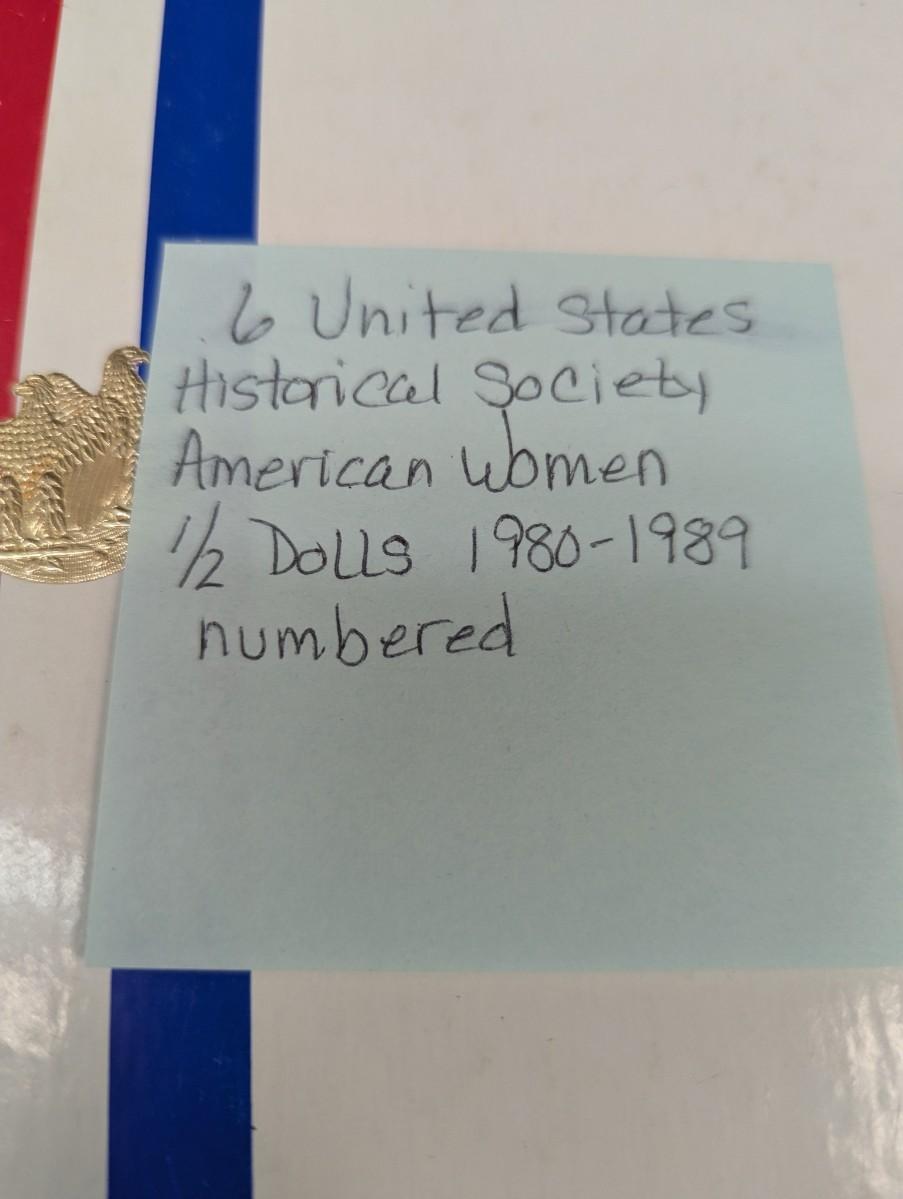 6 United States
Historical Society
American Women
1/2 Dolls 1980-1989
numbered